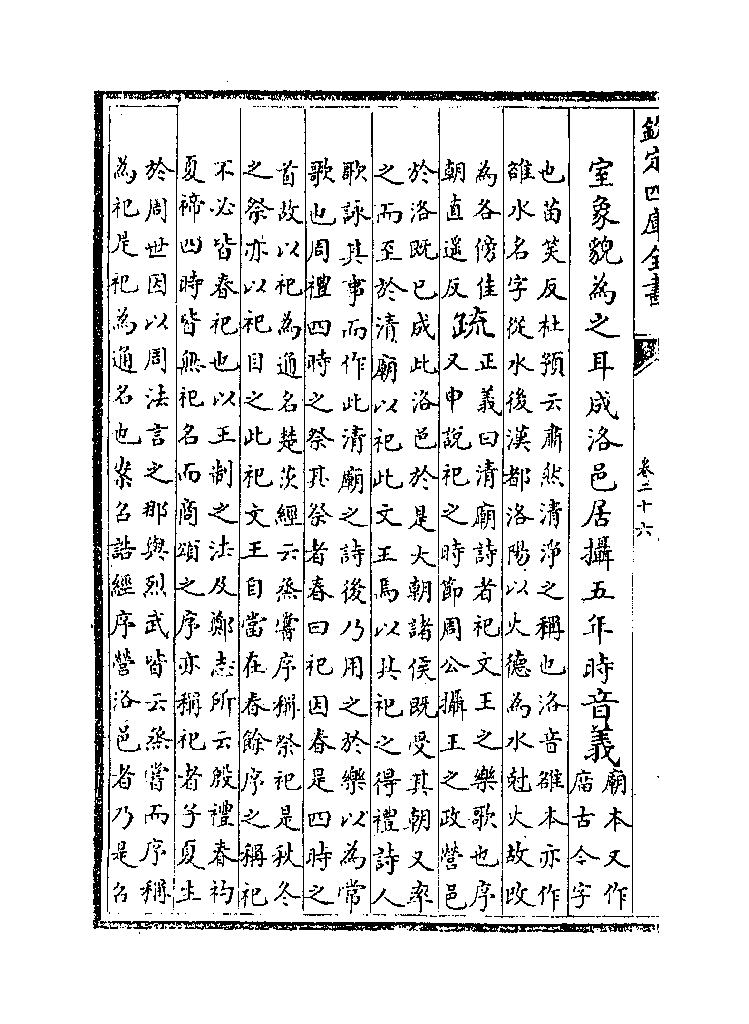 欽定四庫全書
卷二十六
室象貌為之耳成洛邑居攝五年時音義
廟本又作
庿古今字
也苗笑反杜預云肅然清淨之稱也洛音雒本亦作
雒水名字從水後漢都洛陽以火德為水尅火故改
為各傍隹
朝直遥反
疏
正義曰清廟詩者祀文王之樂歌也序
又申說祀之時節周公攝王之政營邑
於洛既已成此洛邑於是大朝諸侯既受其朝又率
之而至於清廟以祀此文王焉以其祀之得禮詩人
歌詠其事而作此清廟之詩後乃用之於樂以為常
歌也周禮四時之祭其祭者春曰祀因春是四時之
首故以祀為通名楚茨經云烝嘗序稱祭祀是秋冬
之祭亦以祀目之此祀文王自當在春餘序之稱祀
不必皆春祀也以王制之法及鄭志所云殷禮春礿
夏禘四時皆無祀名而商頌之序亦稱祀者子夏生
於周世因以周法言之那與烈武皆云烝嘗而序稱
為祀是祀為通名也案召誥經序營洛邑者乃是召